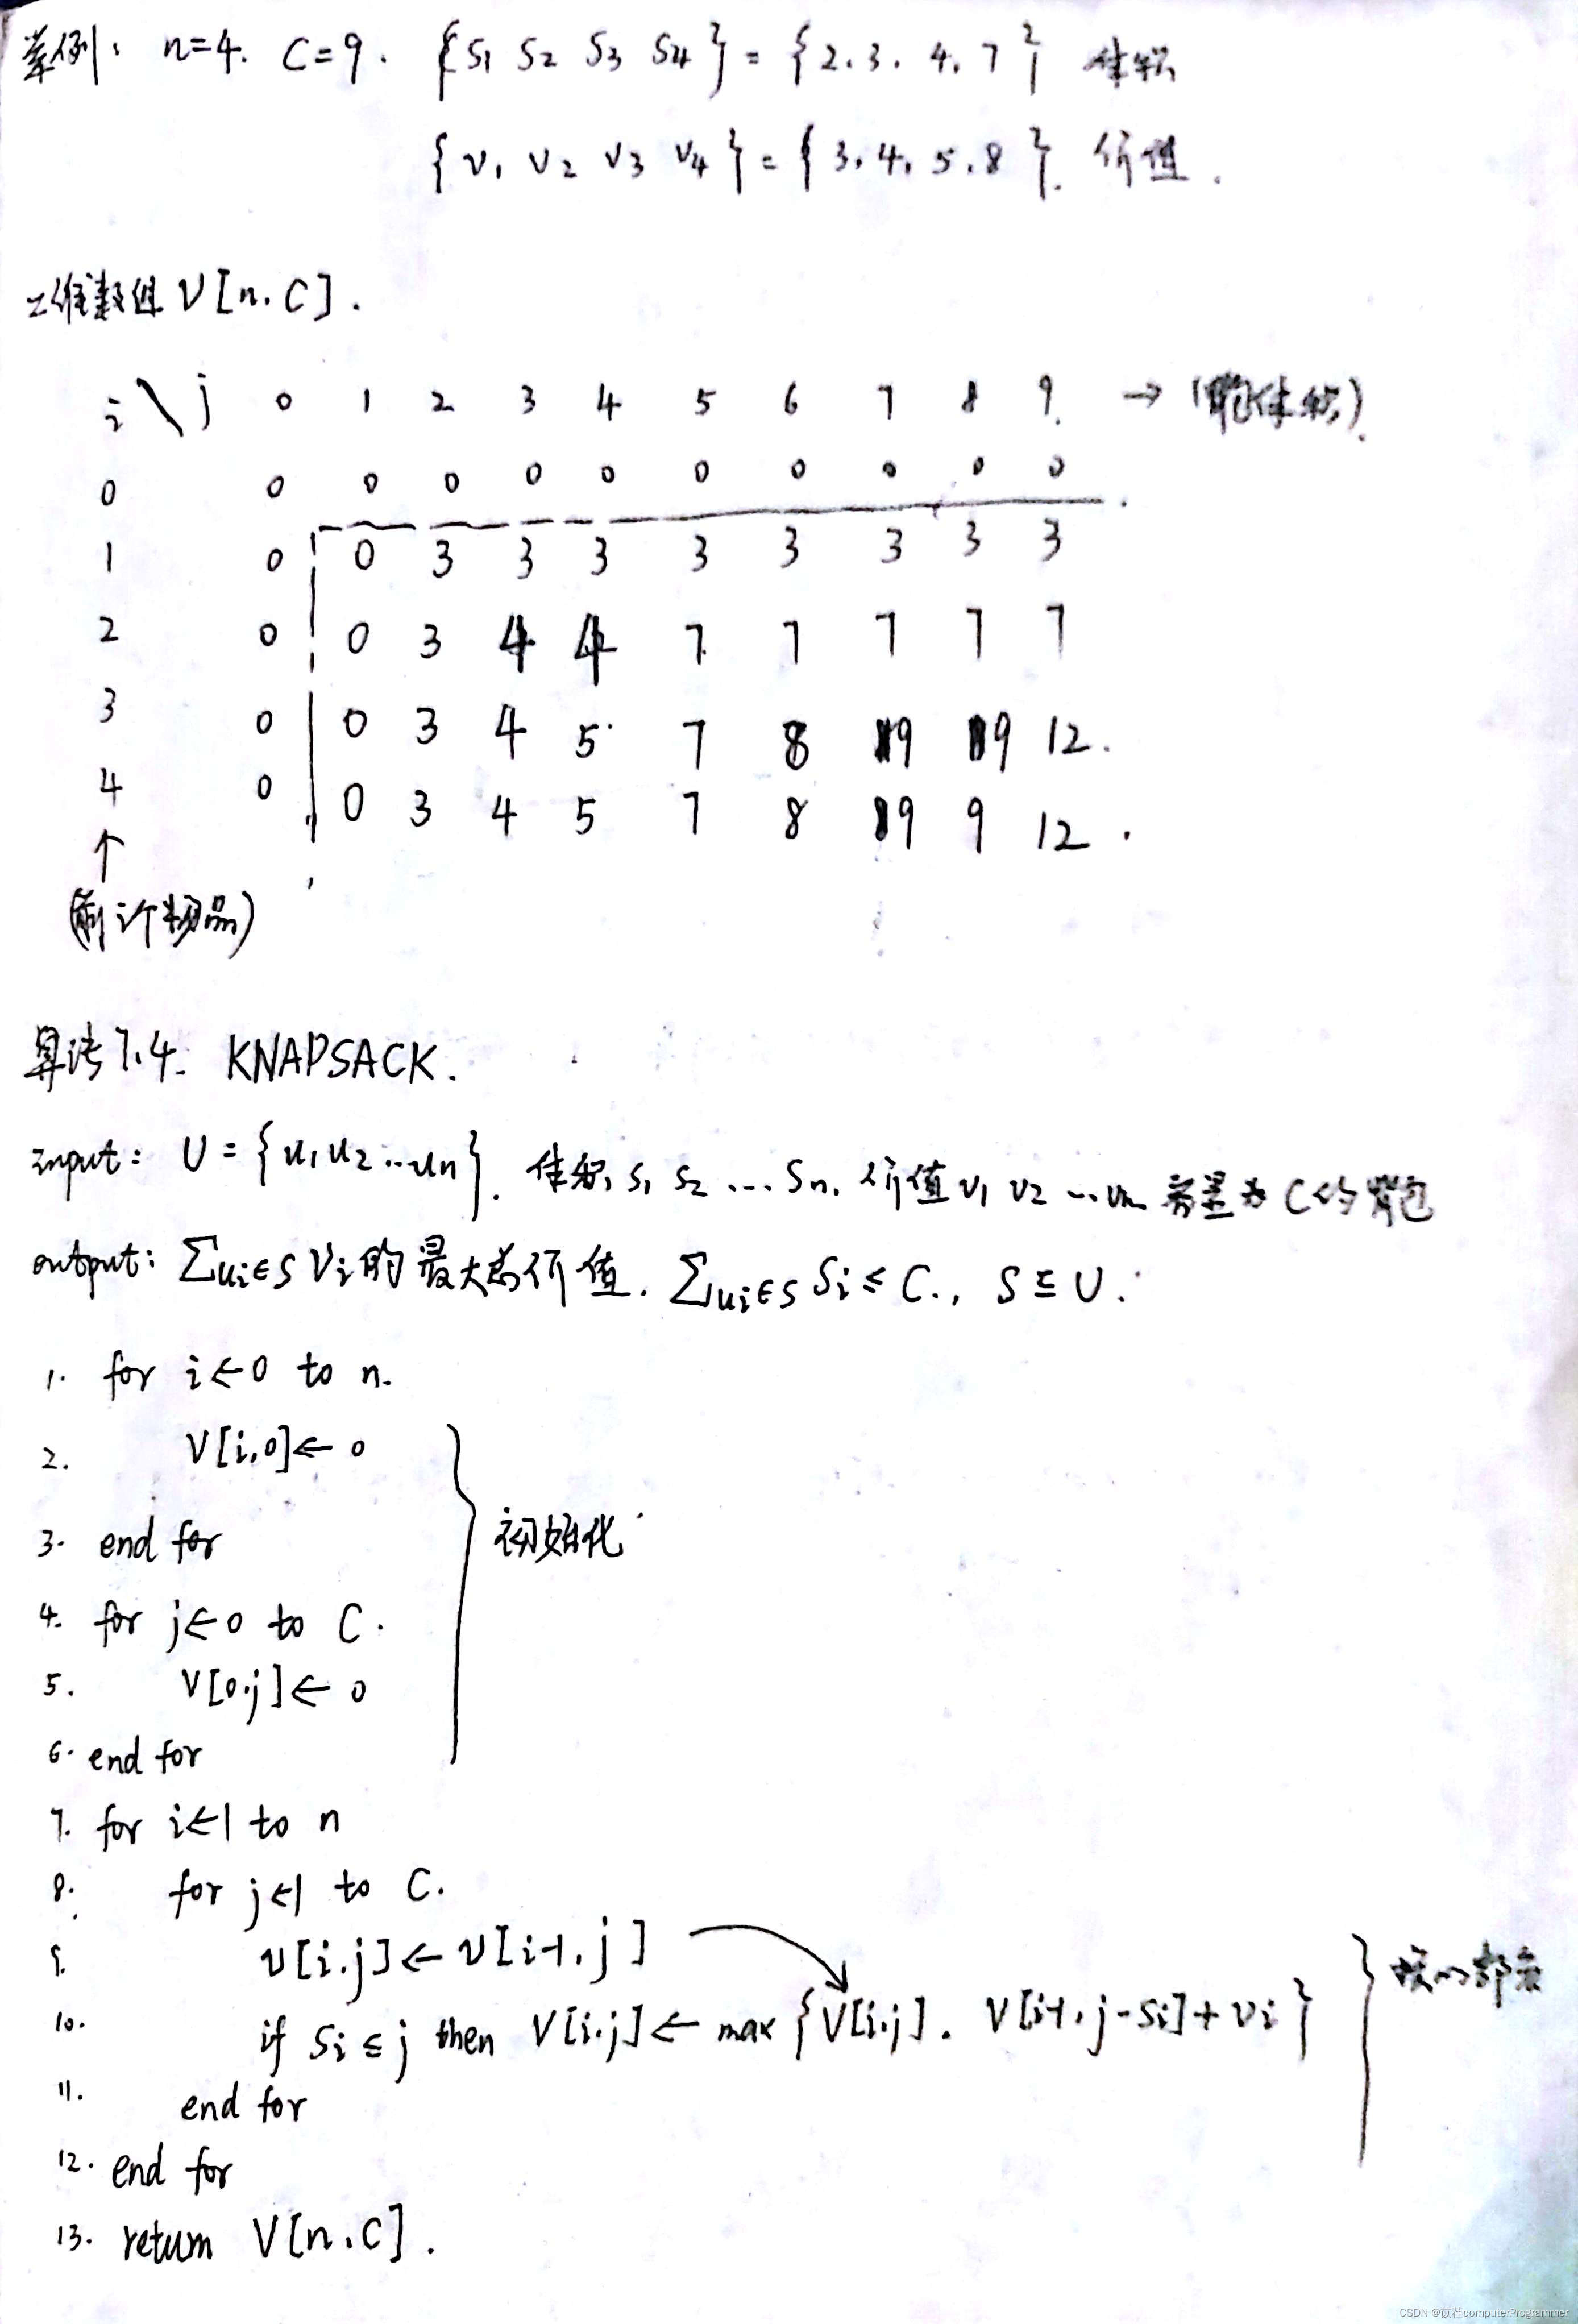 举例: n=4. C=9. {S1 S2 S3 S4} = {2.3.4.7} 体积
{v1 v2 v3 v4} = {3.4.5.8}. 价值.
二维数组 V[n.C].
i \ j 0 1 2 3 4 5 6 7 8 9. → (背包体积).
0 0 0 0 0 0 0 0 0 0 0
1 0 0 3 3 3 3 3 3 3 3
2 0 0 3 4 4 7 7 7 7 7
3 0 0 3 4 5 7 8 9 9 12.
4 0 0 3 4 5 7 8 9 9 12.
↑
(前i个物品)
算法7.4. KNAPSACK.
input: U = {u1 u2 ... un}. 体积 s1 s2 ... sn. 价值 v1 v2 ... vn 容量为C的背包
output: ∑ui∈S vi 的最大总价值. ∑ui∈S si ≤ C., S ⊆ U.
1. for i←0 to n.
2. V[i,0]← 0
3. end for
初始化
4. for j←0 to C.
5. V[0.j]← 0
6. end for
7. for i←1 to n
8. for j←1 to C.
9. V[i.j]← V[i-1.j]
核心部分
10. if si ≤ j then V[i.j]← max {V[i.j]. V[i-1.j-si]+vi}
11. end for
12. end for
13. return V[n.C].
CSDN @苡荏computerProgrammer